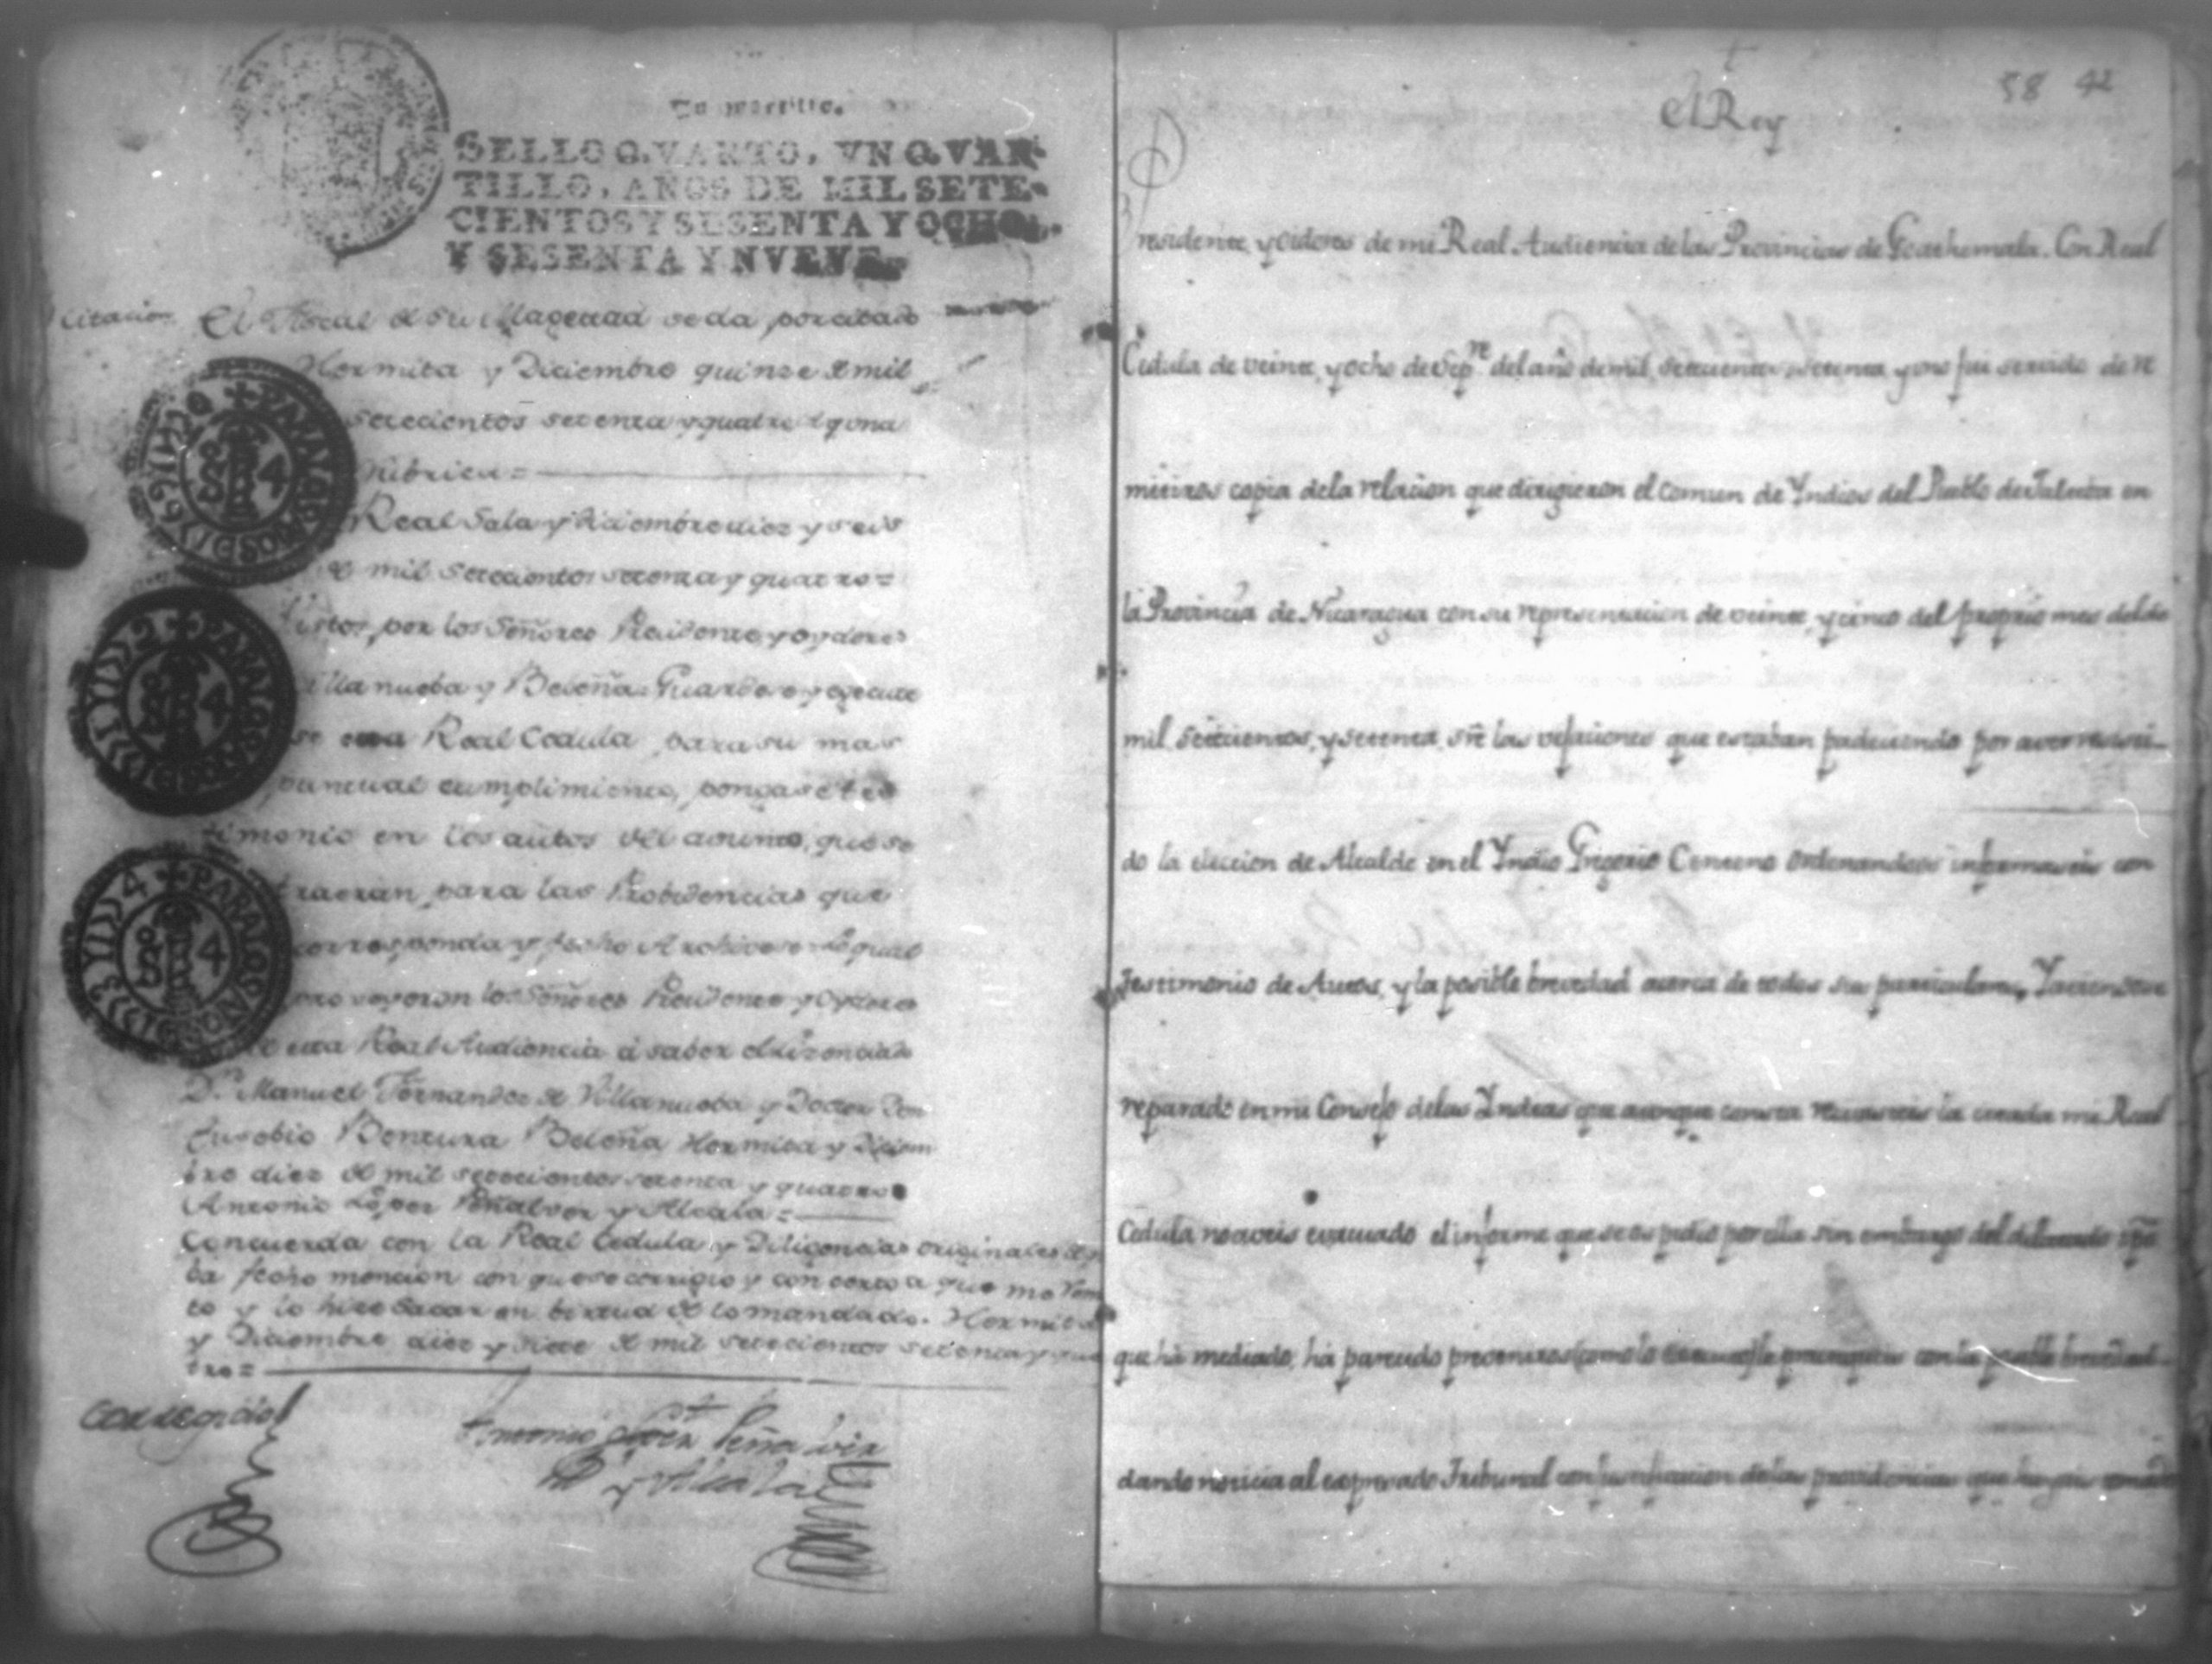 Un quartillo.
SELLO QVARTO, VN QVAR-
TILLO, AÑOS DE MIL SETE-
CIENTOS Y SESENTA Y OCHO,
Y SESENTA Y NVEVE.
Citacion El Fiscal de Su Magestad se da por citado
Hermita y Diciembre quinze de mil
setecientos setenta y quatro
Rubrica =
Real Sala y Diciembre diez y seis
de mil setecientos setenta y quatro =
Vistos por los Señores Presidente y oydores
Villanueba y Beleña: Guardese y execute
se esta Real Cedula para su mas
puntual cumplimiento, pongase tes
timonio en los autos del asunto, que se
traeran para las Probidencias que
corresponda y fecho Archivese lo qual
proveyeron los Señores Presidente y Oydores
de esta Real Audiencia á saber el Lizenciado
Dn. Manuel Fernandez de Villanueba y Doctor Don
Eusebio Bentura Beleña Hermita y Diciem
bre diez de mil setecientos setenta y quatro
Antonio Lopez Peñalver y Alcala =
Concuerda con la Real Cedula y Diligencias originales de
ba fecho mencion con que se corrigio y concerto a que me
to y lo hize sacar en birtud de lo mandado. Hermita
y Diciembre diez y siete de mil setecientos setenta y qua
tro =
Corregido
Antonio Lopez Peñalver
y Alcala
PARA LOS
S 4
PARA LOS
S 4
PARA LOS
S 4
58 42
El Rey
Presidente, y oidores de mi Real Audiencia de las Provincias de Goathemala. Con Real
Cedula de veinte, y ocho de Sepre. del año de mil, setecientos, setenta, y uno fui servido de re
mitiros copia de la relacion que dirigieron el comun de Yndios del Pueblo de en
la Provincia de Nicaragua con su representacion de veinte, y cinco del proprio mes del de
mil, setecientos, y setenta, sre. las vejaciones que estaban padeciendo por aver
do la eleccion de Alcalde en el Yndio Grigorio Centeno ordenandoos informaseis con
testimonio de Autos, y la posible brevedad acerca de todos sus particulares. Y aviendose
reparado en mi Consejo de las Yndias que aunque consta recivisteis la citada mi Real
Cedula no aveis evacuado el informe que se os pidio por ella sin embargo del dilatado tpo.
que há mediado, há parecido preveniros (como lo con la posible brevedad
dando noticia al expresado Tribunal con de las providencias que hayais tomado